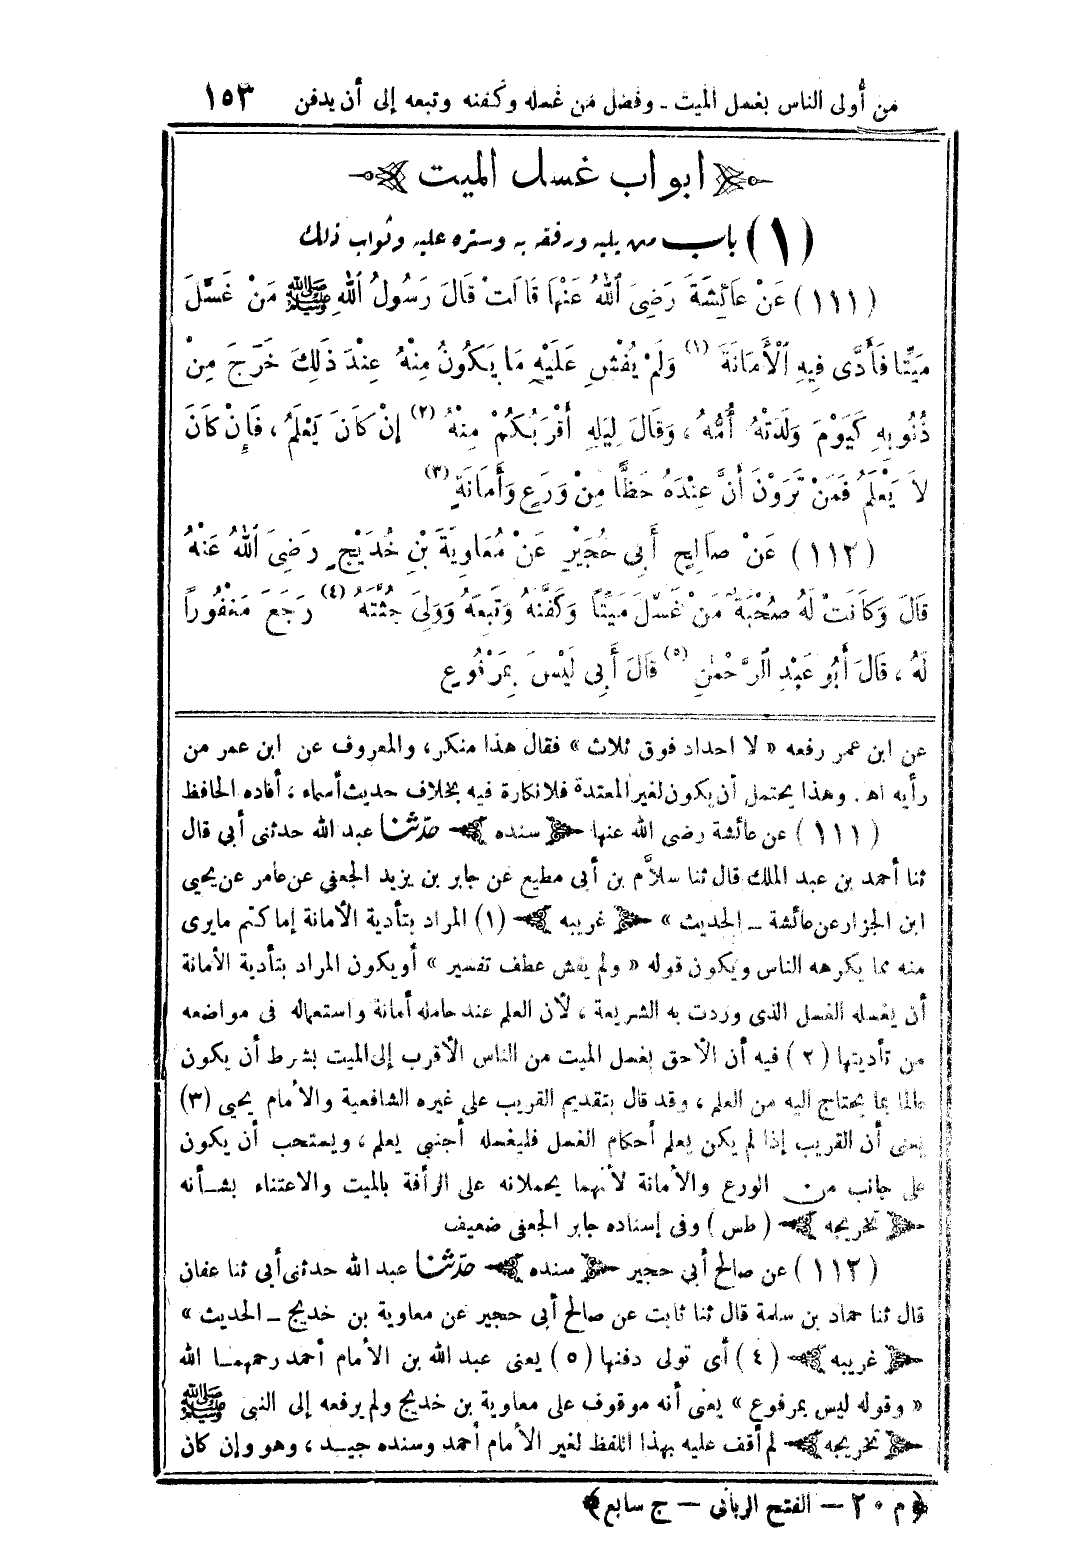 من أولى الناس بغسل الميت ـ وفضل من غسله وكفنه وتبعه إلى أن يدفن ١٥٣
ابواب غسل الميت
(١) باب من يليه ورفقه به وستره عليه وثواب ذلك
(١١١) عَنْ عَائِشَةَ رَضِيَ اللهُ عَنْهَا قَالَتْ قَالَ رَسُولُ اللهِ ﷺ مَنْ غَسَّلَ
مَيِّتًا فَأَدَّى فِيهِ الْأَمَانَةَ (١) وَلَمْ يُفْشِ عَلَيْهِ مَا يَكُونُ مِنْهُ عِنْدَ ذَلِكَ خَرَجَ مِنْ
ذُنُوبِهِ كَيَوْمَ وَلَدَتْهُ أُمُّهُ ، وَقَالَ لِيَلِهِ أَقْرَبُكُمْ مِنْهُ (٢) إِنْ كَانَ يَعْلَمُ ، فَإِنْ كَانَ
لاَ يَعْلَمُ فَمَنْ تَرَوْنَ أَنَّ عِنْدَهُ حَظًّا مِنْ وَرَعٍ وَأَمَانَةٍ (٣)
(١١٢) عَنْ صَالِحٍ أَبِي حُجَيْرٍ عَنْ مُعَاوِيَةَ بْنِ خُدَيْجٍ رَضِيَ اللهُ عَنْهُ
قَالَ وَكَانَتْ لَهُ صُحْبَةٌ مَنْ غَسَّلَ مَيِّتًا وَكَفَّنَهُ وَتَبِعَهُ وَوَلِيَ جُثَّتَهُ (٤) رَجَعَ مَغْفُورًا
لَهُ ، قَالَ أَبُو عَبْدِ الرَّحْمٰنِ (٥) قَالَ أَبِي لَيْسَ بِمَرْفُوعٍ
عن ابن عمر رفعه « لا احداد فوق ثلاث » فقال هذا منكر ، والمعروف عن ابن عمر من
رأيه اه . وهذا يحتمل أن يكون لغير المعتدة فلا نكارة فيه بخلاف حديث أسماء ، أفاده الحافظ
(١١١) عن عائشة رضى الله عنها سنده حدّثنا عبد الله حدثنى أبى قال
ثنا أحمد بن عبد الملك قال ثنا سلاَّم بن أبى مطيع عن جابر بن يزيد الجعفى عن عامر عن يحيى
ابن الجزار عن عائشة ـ الحديث » غريبه (١) المراد بتأدية الأمانة إما كتم مايرى
منه مما يكرهه الناس ويكون قوله « ولم يفش عطف تفسير » أو يكون المراد بتأدية الأمانة
أن يغسله الغسل الذى وردت به الشريعة ، لأن العلم عند حامله أمانة واستعماله فى مواضعه
من تأديتها (٢) فيه أن الأحق بغسل الميت من الناس الأقرب إلى الميت بشرط أن يكون
عالما بما يحتاج اليه من العلم ، وقد قال بتقديم القريب على غيره الشافعية والأمام يحيى (٣)
يعنى أن القريب إذا لم يكن يعلم أحكام الغسل فليغسله أجنبى يعلم ، ويستحب أن يكون
على جانب من الورع والأمانة لأنهما يحملانه على الرأفة بالميت والاعتناء بشأنه
تخريجه (طس) وفى إسناده جابر الجعفى ضعيف
(١١٢) عن صالح أبى حجير سنده حدّثنا عبد الله حدثنى أبى ثنا عفان
قال ثنا حماد بن سلمة قال ثنا ثابت عن صالح أبى حجير عن معاوية بن خديج ـ الحديث »
غريبه (٤) أى تولى دفنها (٥) يعنى عبد الله بن الأمام أحمد رحمهما الله
« وقوله ليس بمرفوع » يعنى أنه موقوف على معاوية بن خديج ولم يرفعه إلى النبى ﷺ
تخريجه لم أقف عليه بهذا اللفظ لغير الأمام أحمد وسنده جيد ، وهو وإن كان
(م ٢٠ ـ الفتح الربانى ـ ج سابع)